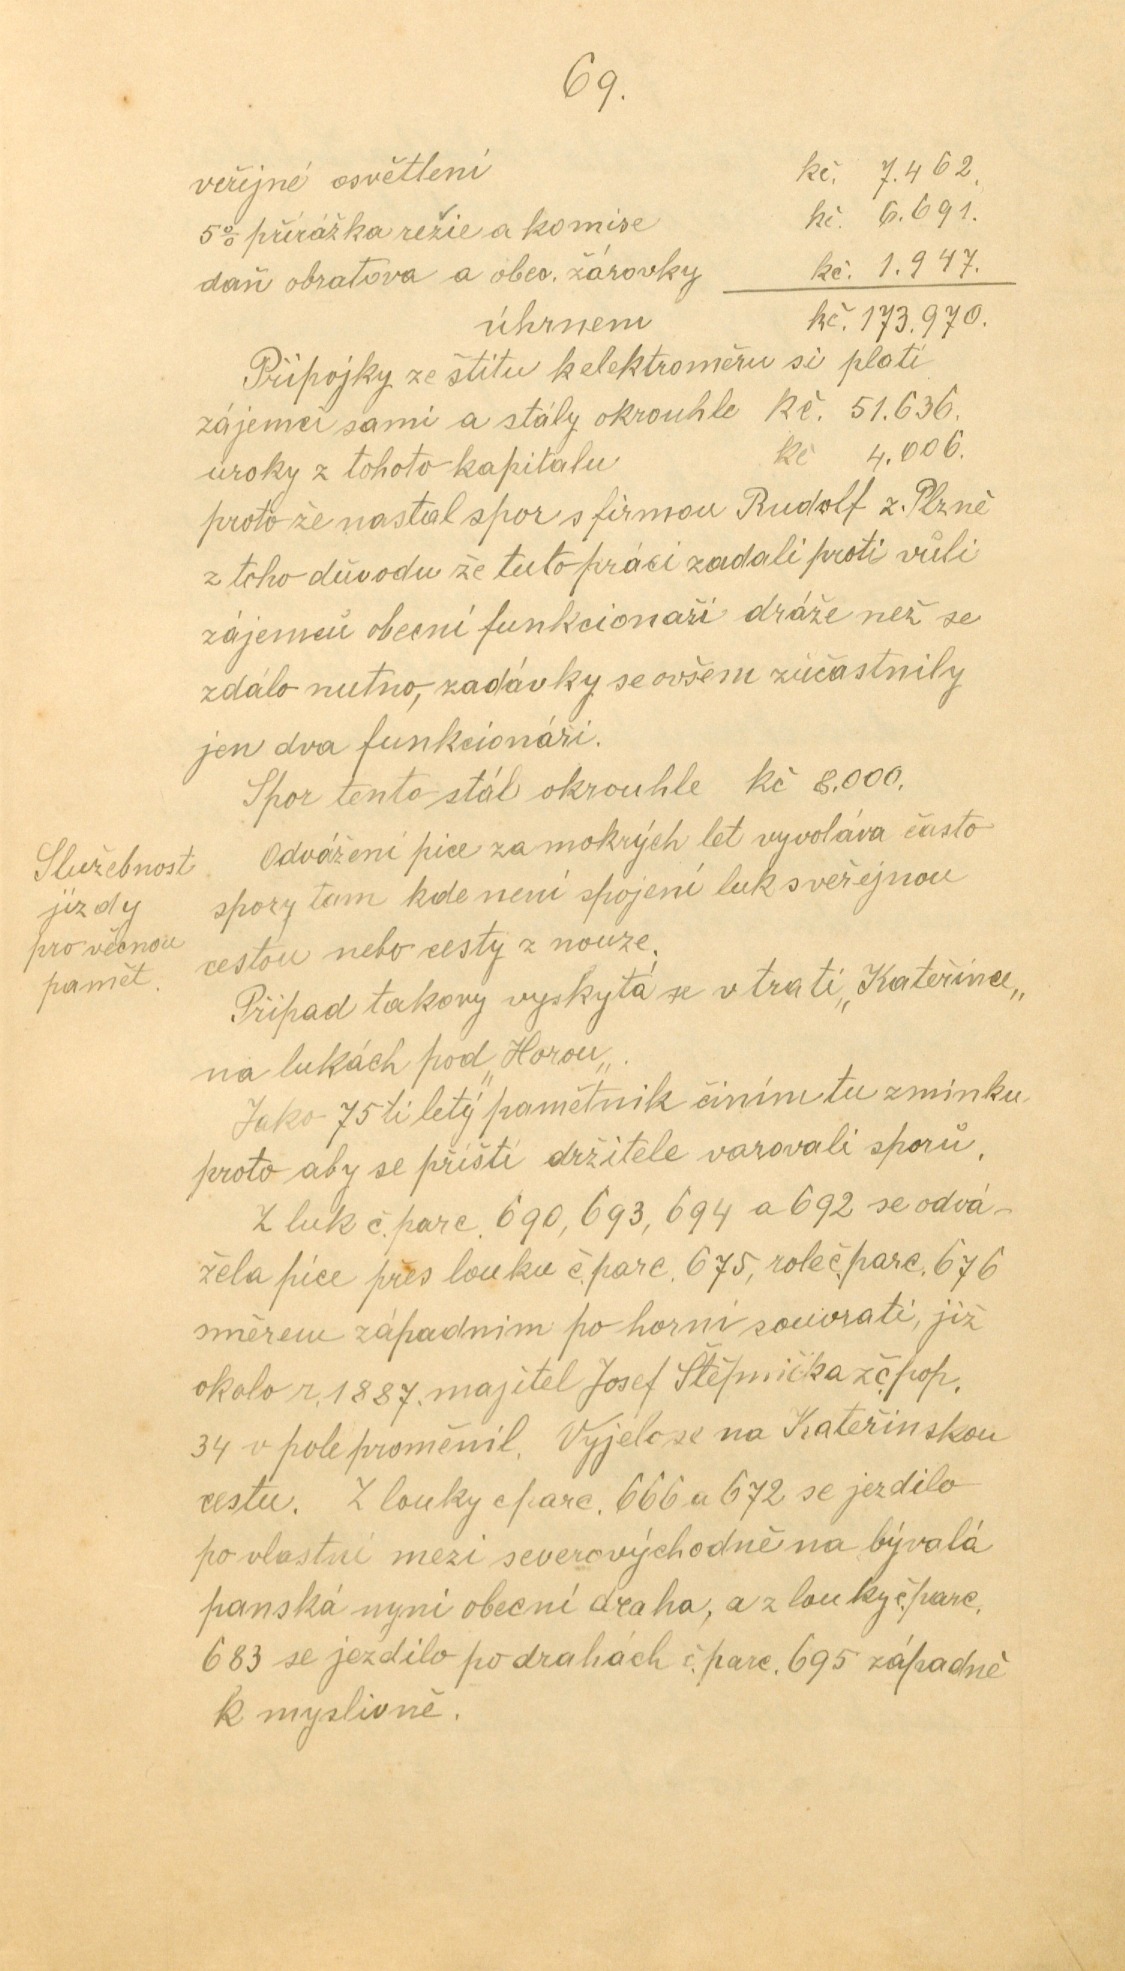 69.
veřejné osvětlení kč. 7.462.
5% přirážka režie a komise kč. 6.691.
daň obratova a obec. žárovky kč. 1.947.
úhrnem kč. 173.970.
Připojky ze štitu k elektroměru si plati
zájemci sami a stály okrouhle Kč. 51.636.
uroky z tohoto kapitalu kč 4.006.
proto že nastal spor s firmou Rudolf z. Plzně
z toho důvodu že tuto práci zadali proti vůli
zájemců obecní funkcionaři dráže než se
zdálo nutno, zadávky se ovšem zúčastnily
jen dva funkcionáři.
Spor tento stál okrouhle kč 8.000.
Služebnost
jízdy
pro věčnou
pamět.
Odvážení pice za mokrých let vyvoláva často
spory tam kde neni spojení luk s veřejnou
cestou nebo cesty z nouze.
Připad takovy vyskytá se v trati „Kateřince„
na lukách pod „Horou„.
Jako 75ti letý pamětnik činím tu zminku
proto aby se příští držitele varovali sporů.
Z luk č. parc. 690, 693, 694 a 692 se odvá-
žela píce přes louku č. parc. 675, role č. parc. 676
směrem západnim po horni souvrati, již
okolo r. 1887. majitel Josef Štěpnička z č. pop.
34 v pole proměnil. Vyjelo se na Kateřinskou
cestu. Z louky c parc. 666 a 672 se jezdilo
po vlastní mezi severovýchodně na bývalá
panská nyni obecní draha, a z louky č. parc.
683 se jezdilo po drahách č. parc. 695 západně
k myslivně.